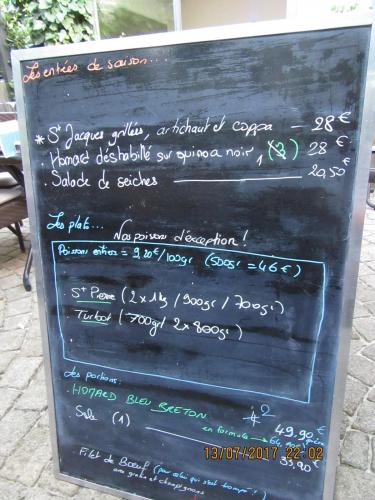 Les entrées de saison...
* St Jacques grillées, artichaut et coppa — 28€
. Homard déshabillé sur quinoa noir 1 (3) 28€
. Salade de seiches 20,50€
Les plats...
Nos poissons d'exception !
Poissons entiers = 9,20€/100gr (500gr = 46€)
. St Pierre (2 x 1kg / 900gr / 700gr)
. Turbot (700gr/ 2 x 800gr)
Les portions:
. HOMARD BLEU BRETON 2
49,90€
en formule → 64,
Sole (1)
35,90€
. Filet de Boeuf (pour celui qui s'est trompé!)
aux gratin et champignons
13/07/2017 22:02